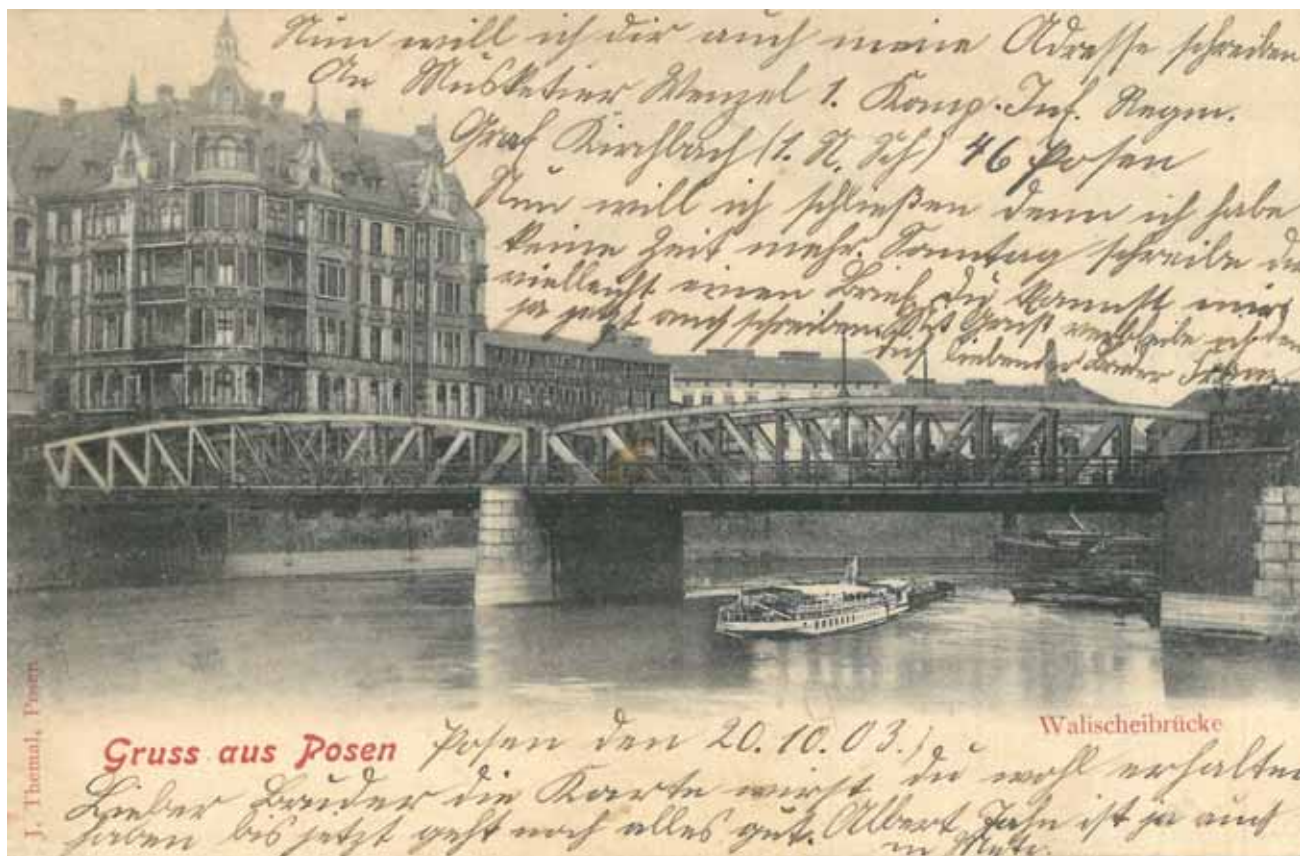 Nun will ich dir auch meine Adresse schreiben
An Musketier Wenzel 1. Komp. Inf. Regm.
Graf Kirchbach (1. N. Sch) 46 Posen
Nun will ich schließen denn ich habe
keine Zeit mehr. Sonntag schreibe
vielleicht einen Brief, du kannst mir
ja jetzt auch schreiben. Es Grüßt verbleibe
dich liebender Bruder
Gruss aus Posen
Posen den 20.10.03.
Walischeibrücke
Lieber Bruder die Karte wirst du wohl erhalten
haben bis jetzt geht noch alles gut. Albert Jahn ist ja auch
in Metz.
J. Themal, Posen